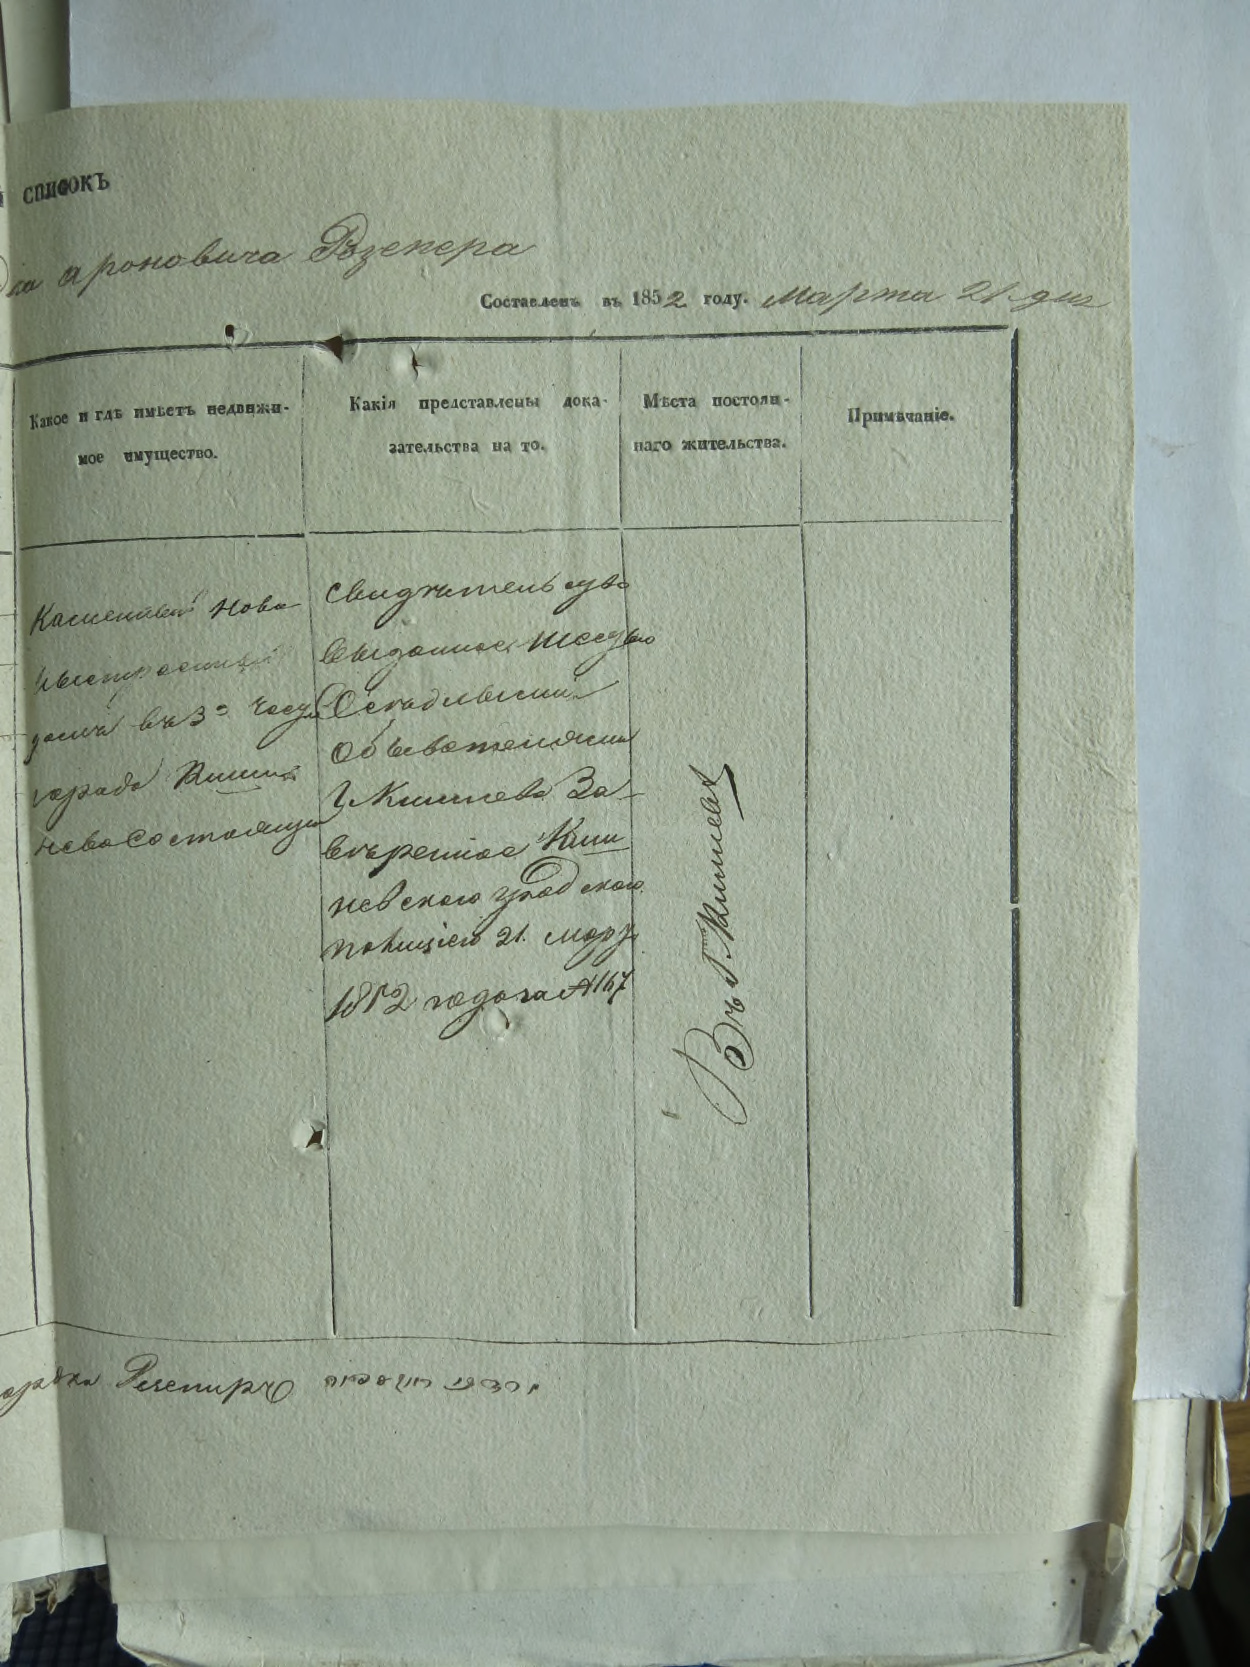 СПИСОКЪ
ароновича Рзепера
Составленъ въ 1852 году. Марта 21 дня
Какое и гдѣ имѣетъ недвижи-
мое имущество.
Какія представлены дока-
зательства на то.
Мѣста постоян-
наго жительства.
Примѣчаніе.
Каменный ново
выстроенный
домъ въ 3й
города Киши
нева состоящій
Свидѣтельство
выданное шестью
Осѣдлыми
Обывателями
г. Кишинева За
вѣренное Киши
невскою градскою
полиціею 21. мар
1852 года за №167
Въ г. Кишиневѣ